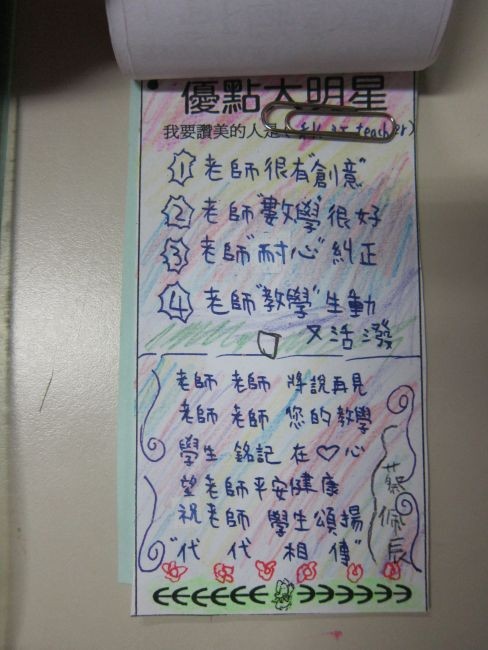 優點大明星
我要讚美的人是( teacher)
1 老師很有"創意"
2 老師"數學"很好
3 老師"耐心"糾正
4 老師"教學"生動
又活潑
老師 老師 將說再見
老師 老師 您的教學
學生 銘記 在♡心
望老師平安健康
祝老師 學生頌揚
"代 代 相 傳"
蔡佩辰